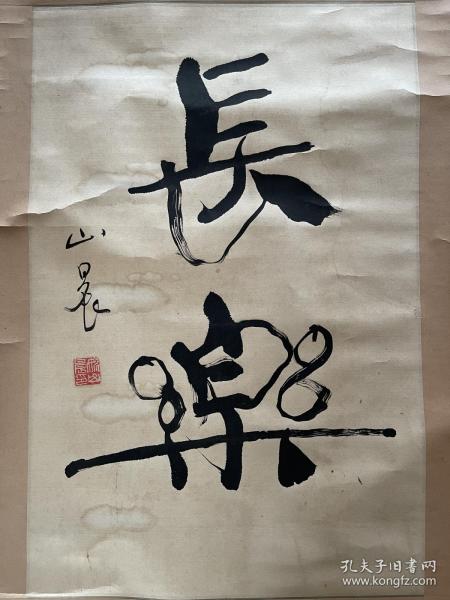 長樂
山晨
孔夫子旧书网
www.kongfz.com